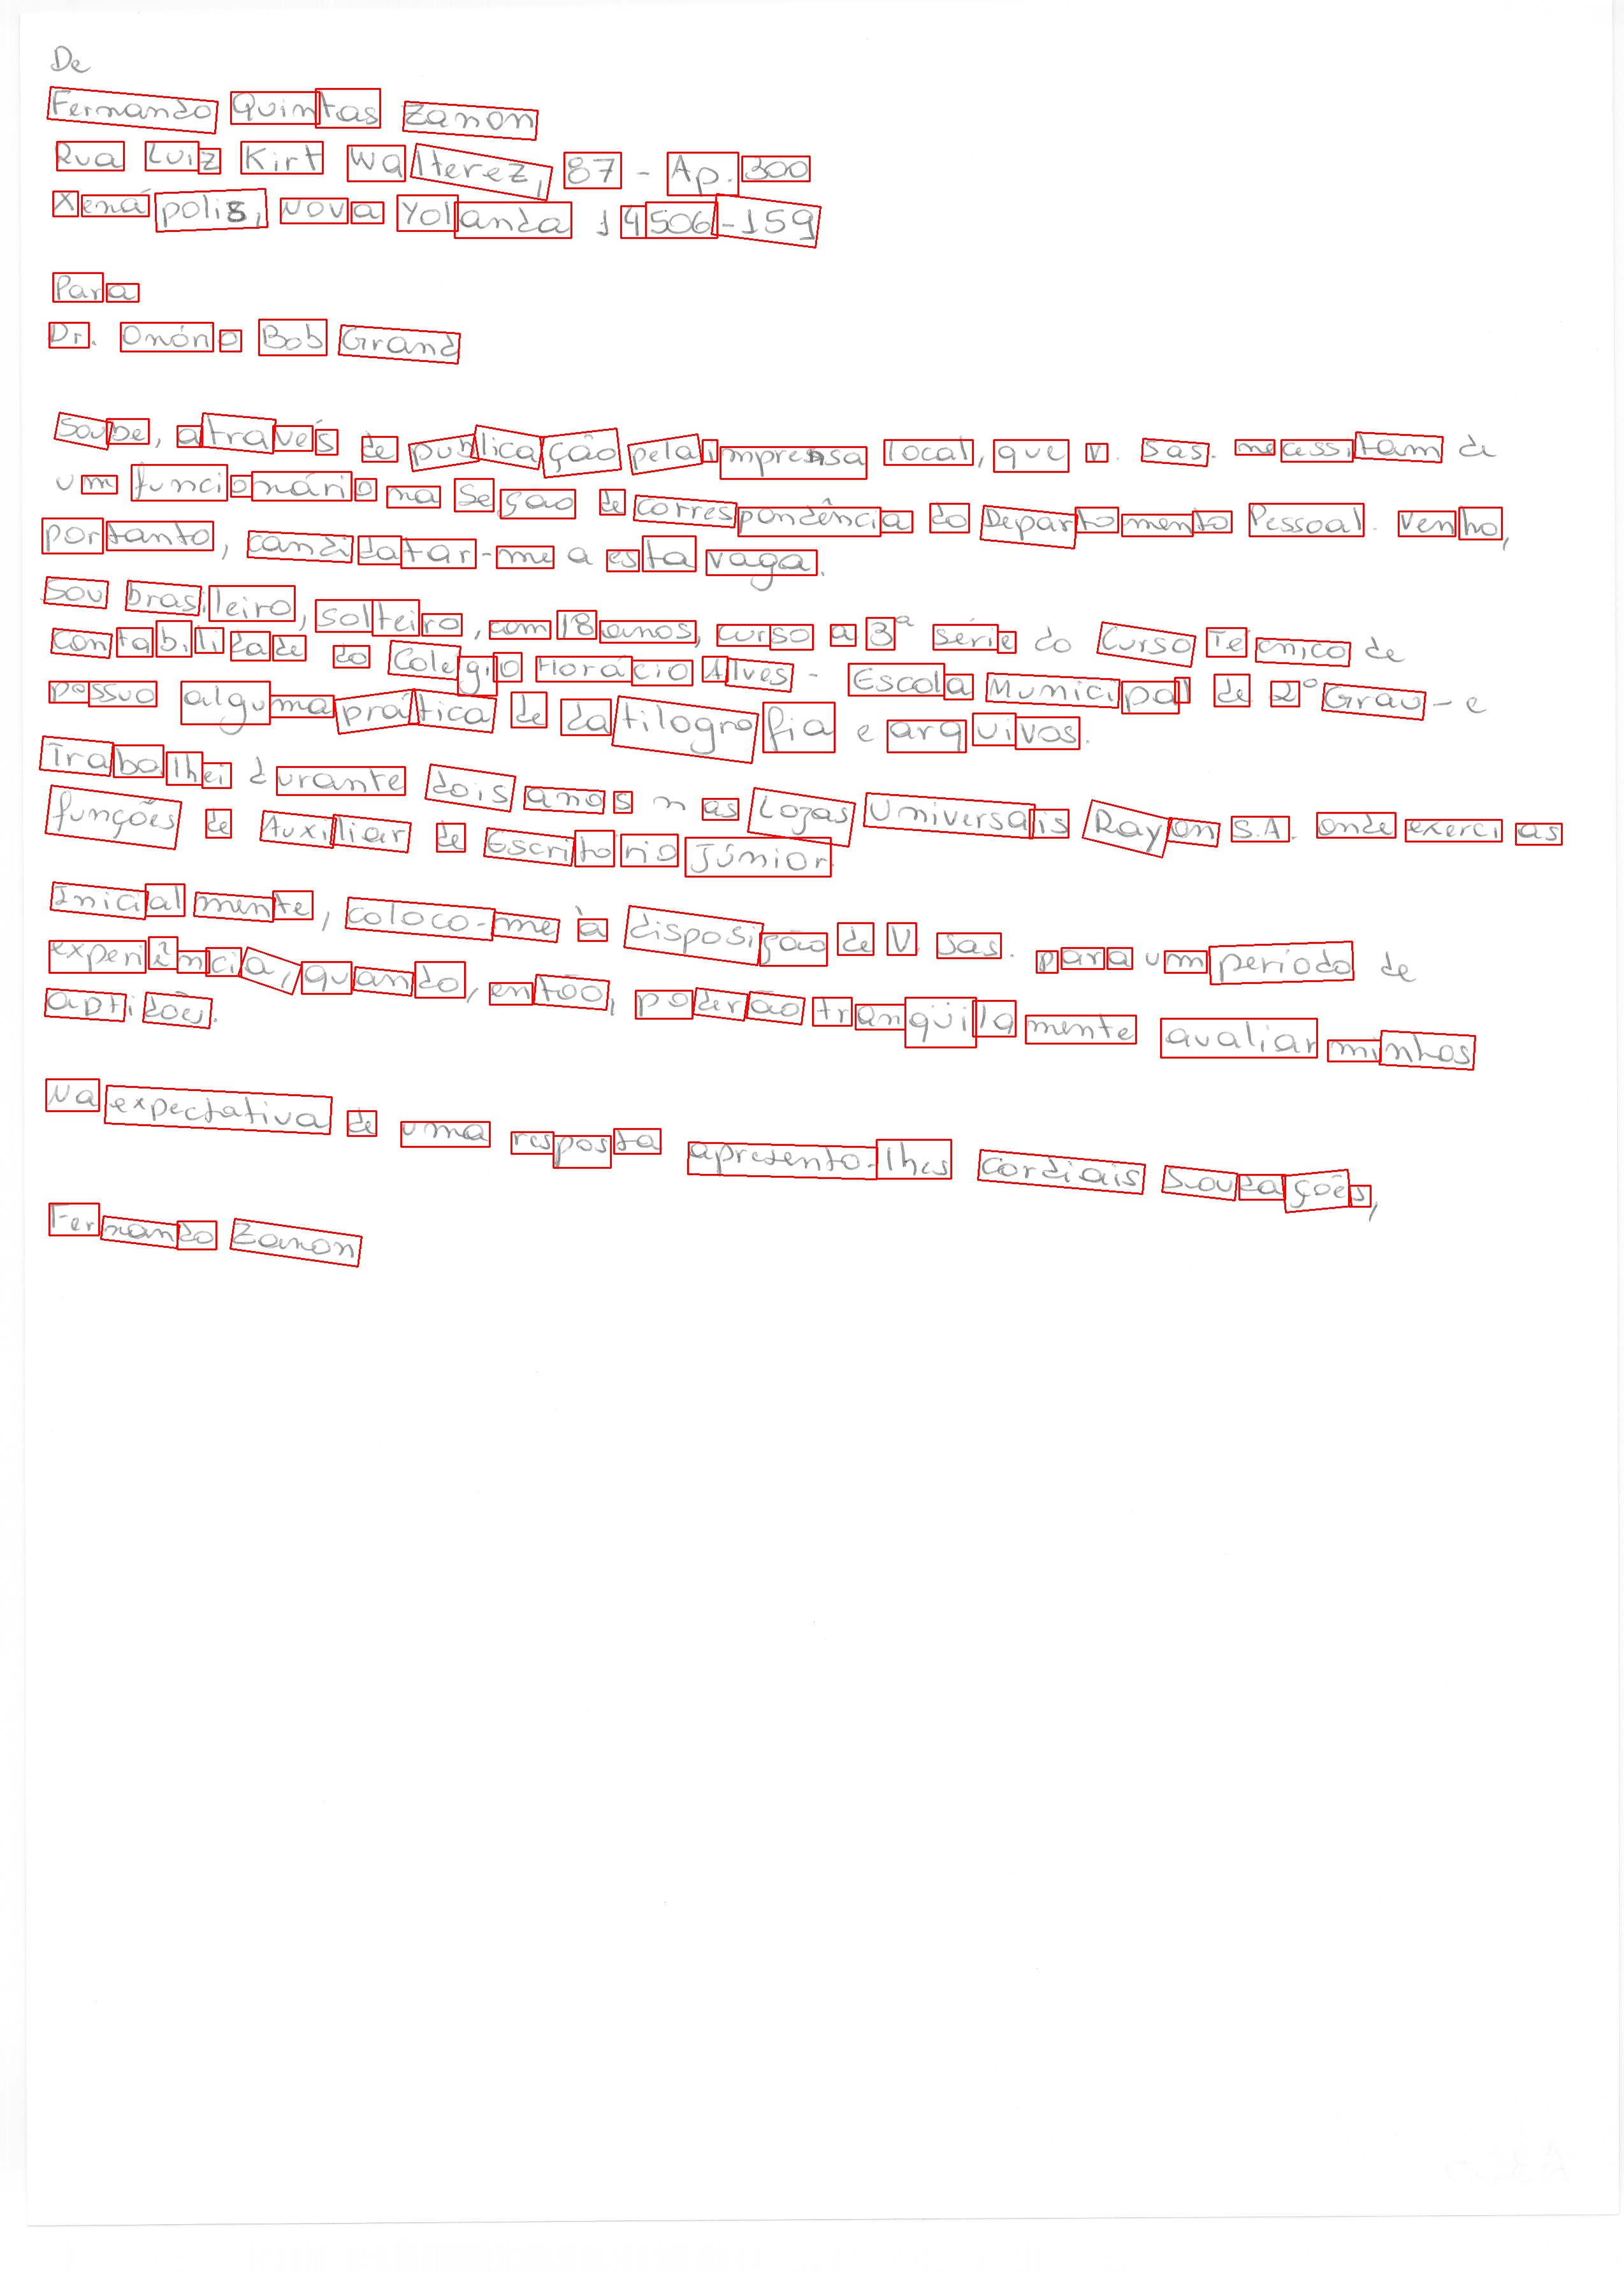 De
Fernando Quintas Zanon
Rua Luiz Kirt Walterez, 87 - Ap. 300
Xenápolis, Nova Yolanda 14506-159
Para
Dr. Onório Bob Grand
Soube, através de publicação pela imprensa local, que V. Sas. necessitam de
um funcionário na Seção de correspondência do Departamento Pessoal. Venho,
portanto, candidatar-me a esta vaga.
Sou brasileiro, solteiro, com 18 anos, curso a 3ª série do Curso Técnico de
contabilidade do Colégio Horácio Alves - Escola Municipal de 2º Grau - e
possuo alguma prática de datilografia e arquivos.
Trabalhei durante dois anos nas Lojas Universais Rayon S.A. onde exerci as
funções de Auxiliar de Escritório Júnior.
Inicialmente, coloco-me à disposição de V. Sas. para um período de
experiência, quando, então, poderão tranqüilamente avaliar minhas
aptidões.
Na expectativa de uma resposta apresento-lhes cordiais
Fernando Zanon